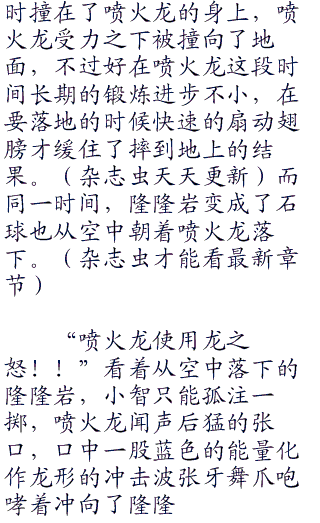 时撞在了喷火龙的身上，喷
火龙受力之下被撞向了地
面，不过好在喷火龙这段时
间长期的锻炼进步不小，在
要落地的时候快速的扇动翅
膀才缓住了摔到地上的结
果。（杂志虫天天更新）而
同一时间，隆隆岩变成了石
球也从空中朝着喷火龙落
下。（杂志虫才能看最新章
节）
“喷火龙使用龙之
怒！！”看着从空中落下的
隆隆岩，小智只能孤注一
掷，喷火龙闻声后猛的张
口，口中一股蓝色的能量化
作龙形的冲击波张牙舞爪咆
哮着冲向了隆隆